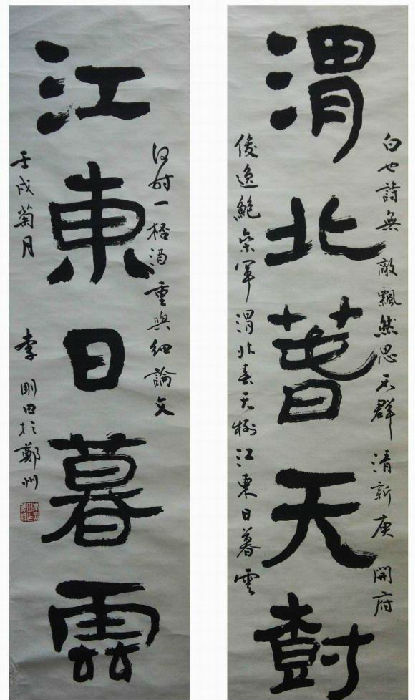 渭北萅天樹
江東日暮雲
白也詩無敵飄然思不群清新庾開府
俊逸鮑參軍渭北春天樹江東日暮雲
何時一樽酒重與細論文
壬戌菊月 李剛田於鄭州